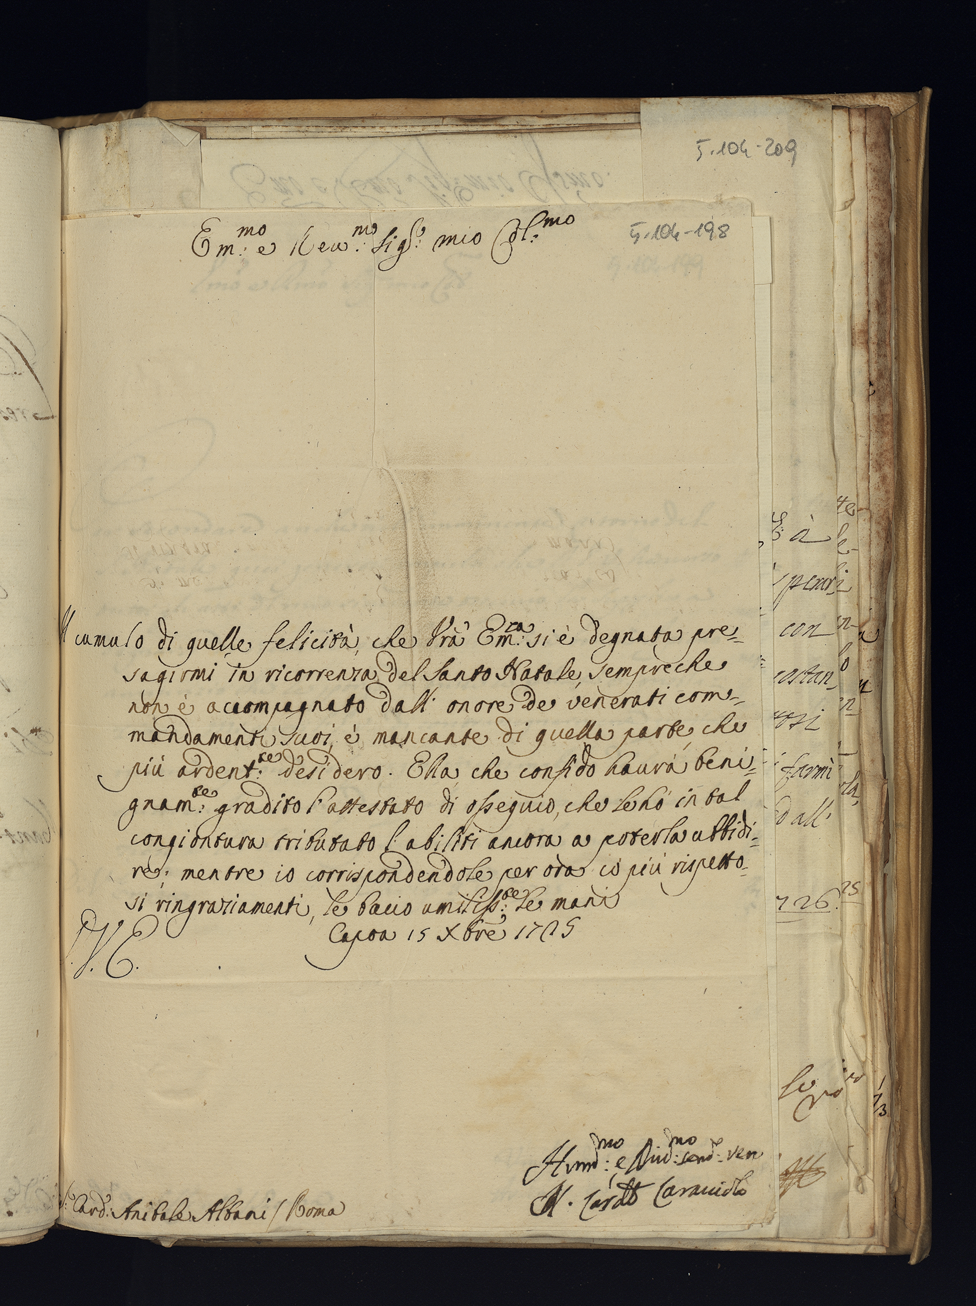 5.104-209
Em.mo e Reu.mo Sig.r mio Col.mo
5.104-198
Il cumulo di quelle felicità, che Vrã Em.za si è degnata pre=
sagirmi in ricorrenza del Santo Natale, sempreche
non è accompagnato dall' onore de venerati com=
mandamenti suoi, è mancante di quella parte, che
più ardent.te desidero. Ella che confido haurà beni=
gnam.te gradito l'attestato di ossequio, che le hò in tal
congiontura tributato l'abiliti ancora a poterla ubbidi=
re; mentre io corrispondendole per ora co' più rispetto=
si ringraziamenti, le bacio umiliss.te le mani
Capoa 15 Xbre 1725
V. E.
Hum.mo e Diu.mo ser.re ven
N. Card. Caracciolo
S.r Card. Anibale Albani / Roma
à
con
costan=
farmi
dall'
726